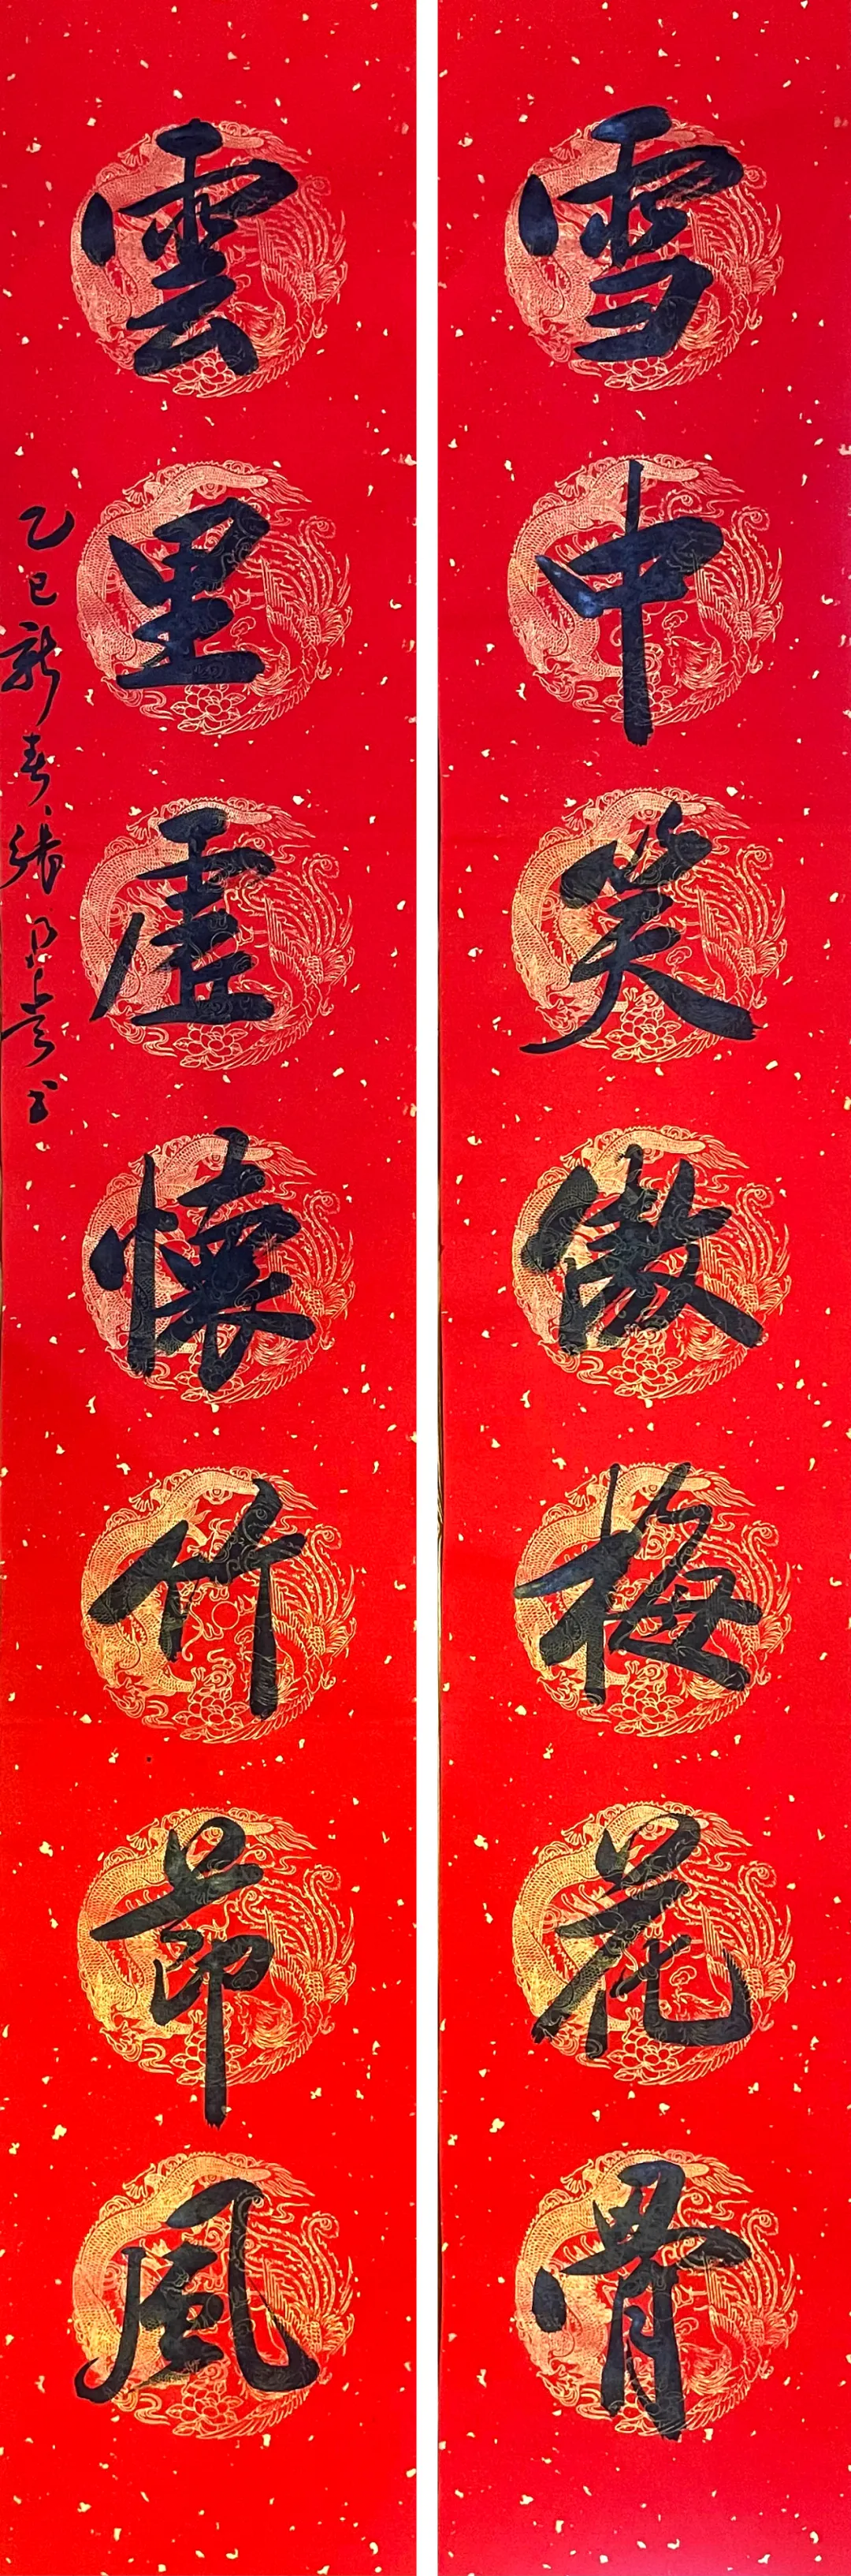 雪中笑傲梅花骨
雲里虛懷竹節風
乙巳新春張